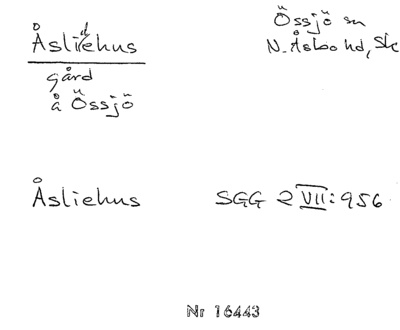 Åsliehus
Össjö sn
N. Åsbo hd, Sk
gård
å Össjö
Åsliehus
SGG 2 VII: 956
Nr 16443